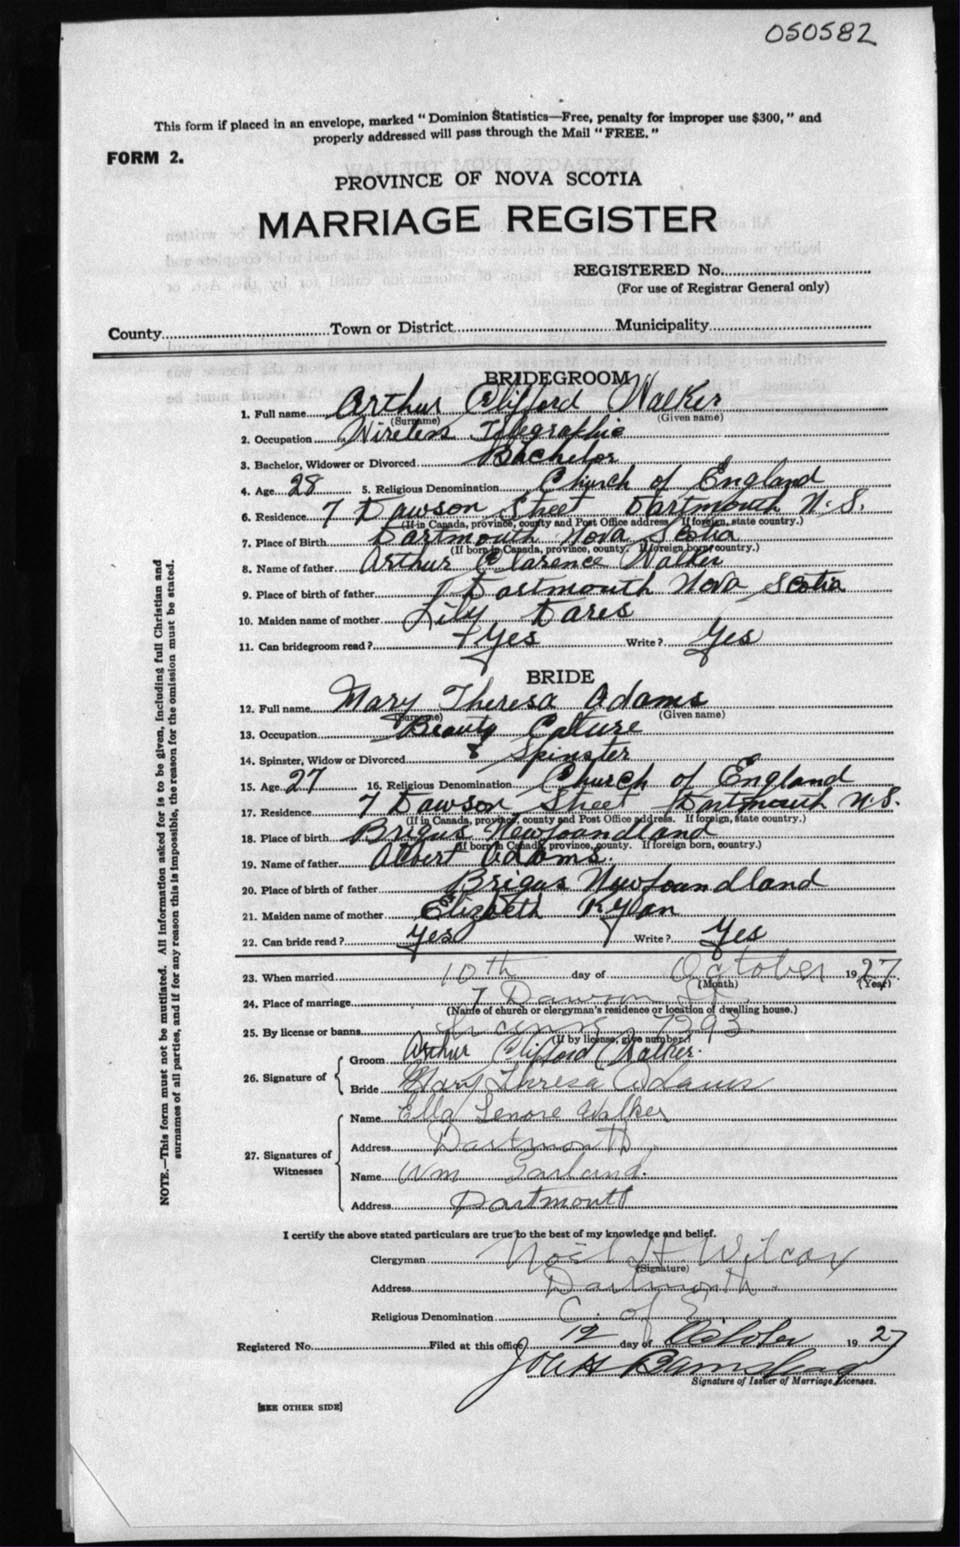 050582
This form if placed in an envelope, marked "Dominion Statistics—Free, penalty for improper use $300," and
properly addressed will pass through the Mail "FREE."
FORM 2.
PROVINCE OF NOVA SCOTIA
MARRIAGE REGISTER
REGISTERED No.
(For use of Registrar General only)
County Town or District Municipality
BRIDEGROOM
1. Full name Arthur Clifford Walker
(Surname) (Given name)
2. Occupation Wireless Telegraphic
3. Bachelor, Widower or Divorced Bachelor
4. Age 28 5. Religious Denomination Church of England
6. Residence 7 Dawson Street Dartmouth N.S.
(If in Canada, province, county and Post Office address. If foreign, state country.)
7. Place of Birth Dartmouth Nova Scotia
(If born in Canada, province, county. If foreign born, country.)
8. Name of father Arthur Clarence Walker
9. Place of birth of father Dartmouth Nova Scotia
10. Maiden name of mother Lily Dares
11. Can bridegroom read? Yes Write? Yes
BRIDE
12. Full name Mary Theresa Adams
(Surname) (Given name)
13. Occupation Beauty Culture
14. Spinster, Widow or Divorced Spinster
15. Age 27 16. Religious Denomination Church of England
17. Residence 7 Dawson Street Dartmouth N.S.
(If in Canada, province, county and Post Office address. If foreign, state country.)
18. Place of birth Brigus Newfoundland
(If born in Canada, province, county. If foreign born, country.)
19. Name of father Albert Adams.
20. Place of birth of father Brigus Newfoundland
21. Maiden name of mother Elizabeth Ryan
22. Can bride read? Yes Write? Yes
23. When married 10th day of October 1927
(Month) (Year)
24. Place of marriage 7 Dawson St.
(Name of church or clergyman's residence or location of dwelling house.)
25. By license or banns License 7293
(If by license, give number.)
26. Signature of
Groom Arthur Clifford Walker.
Bride Mary Theresa Adams
27. Signatures of Witnesses
Name Ella Lenore Walker
Address Dartmouth
Name Wm Garland.
Address Dartmouth
I certify the above stated particulars are true to the best of my knowledge and belief.
Clergyman Noel H. Wilcox
(Signature)
Address Dartmouth.
Religious Denomination C. of E.
Registered No. Filed at this office 12 day of October 1927
Signature of Issuer of Marriage Licenses.
[SEE OTHER SIDE]
NOTE.—This form must not be mutilated. All information asked for is to be given, including full Christian and
surnames of all parties, and if for any reason this is impossible, the reason for the omission must be stated.